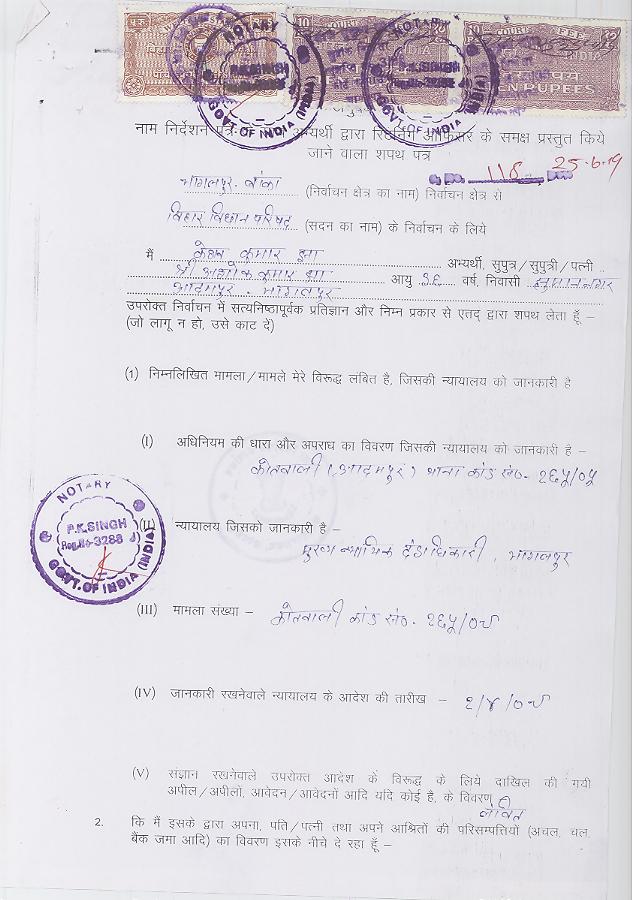 NOTARY
P.K.SINGH
Reg.No-3288
GOVT. OF INDIA (INDIA)
COURT FEE
INDIA
NOTARY
P.K.SINGH
Reg.No-3288
GOVT. OF INDIA (INDIA)
COURT FEE
INDIA
TEN RUPEES
नाम निर्देशन पत्र अभ्यर्थी द्वारा रिटर्निंग ऑफिसर के समक्ष प्रस्तुत किये
जाने वाला शपथ पत्र
118 25-6-19
भागलपुर-बांका (निर्वाचन क्षेत्र का नाम) निर्वाचन क्षेत्र से
बिहार विधान परिषद् (सदन का नाम) के निर्वाचन के लिये
मैं कुमार झा अभ्यर्थी, सुपुत्र/सुपुत्री/पत्नी
श्री अशोक कुमार झा आयु वर्ष, निवासी हनुमान नगर
आदमपुर - भागलपुर
उपरोक्त निर्वाचन में सत्यनिष्ठापूर्वक प्रतिज्ञान और निम्न प्रकार से एतद् द्वारा शपथ लेता हूँ –
(जो लागू न हो, उसे काट दें)
(1) निम्नलिखित मामला/मामले मेरे विरूद्ध लंबित है, जिसकी न्यायालय को जानकारी है
(I) अधिनियम की धारा और अपराध का विवरण जिसकी न्यायालय को जानकारी है –
कोतवाली (आदमपुर) थाना कांड सं०- २६५/०५
NOTARY
P.K.SINGH
Reg.No-3288
GOVT. OF INDIA (INDIA)
(II) न्यायालय जिसको जानकारी है –
मुख्य न्यायिक दंडाधिकारी, भागलपुर
(III) मामला संख्या – कोतवाली कांड सं०- २६५/०५
(IV) जानकारी रखनेवाले न्यायालय के आदेश की तारीख –
(V) संज्ञान रखनेवाले उपरोक्त आदेश के विरूद्ध के लिये दाखिल की गयी
अपील/अपीलों, आवेदन/आवेदनों आदि यदि कोई है, के विवरण
लंबित
2. कि मैं इसके द्वारा अपना, पति/पत्नी तथा अपने आश्रितों की परिसम्पत्तियों (अचल, चल,
बैंक जमा आदि) का विवरण इसके नीचे दे रहा हूँ –